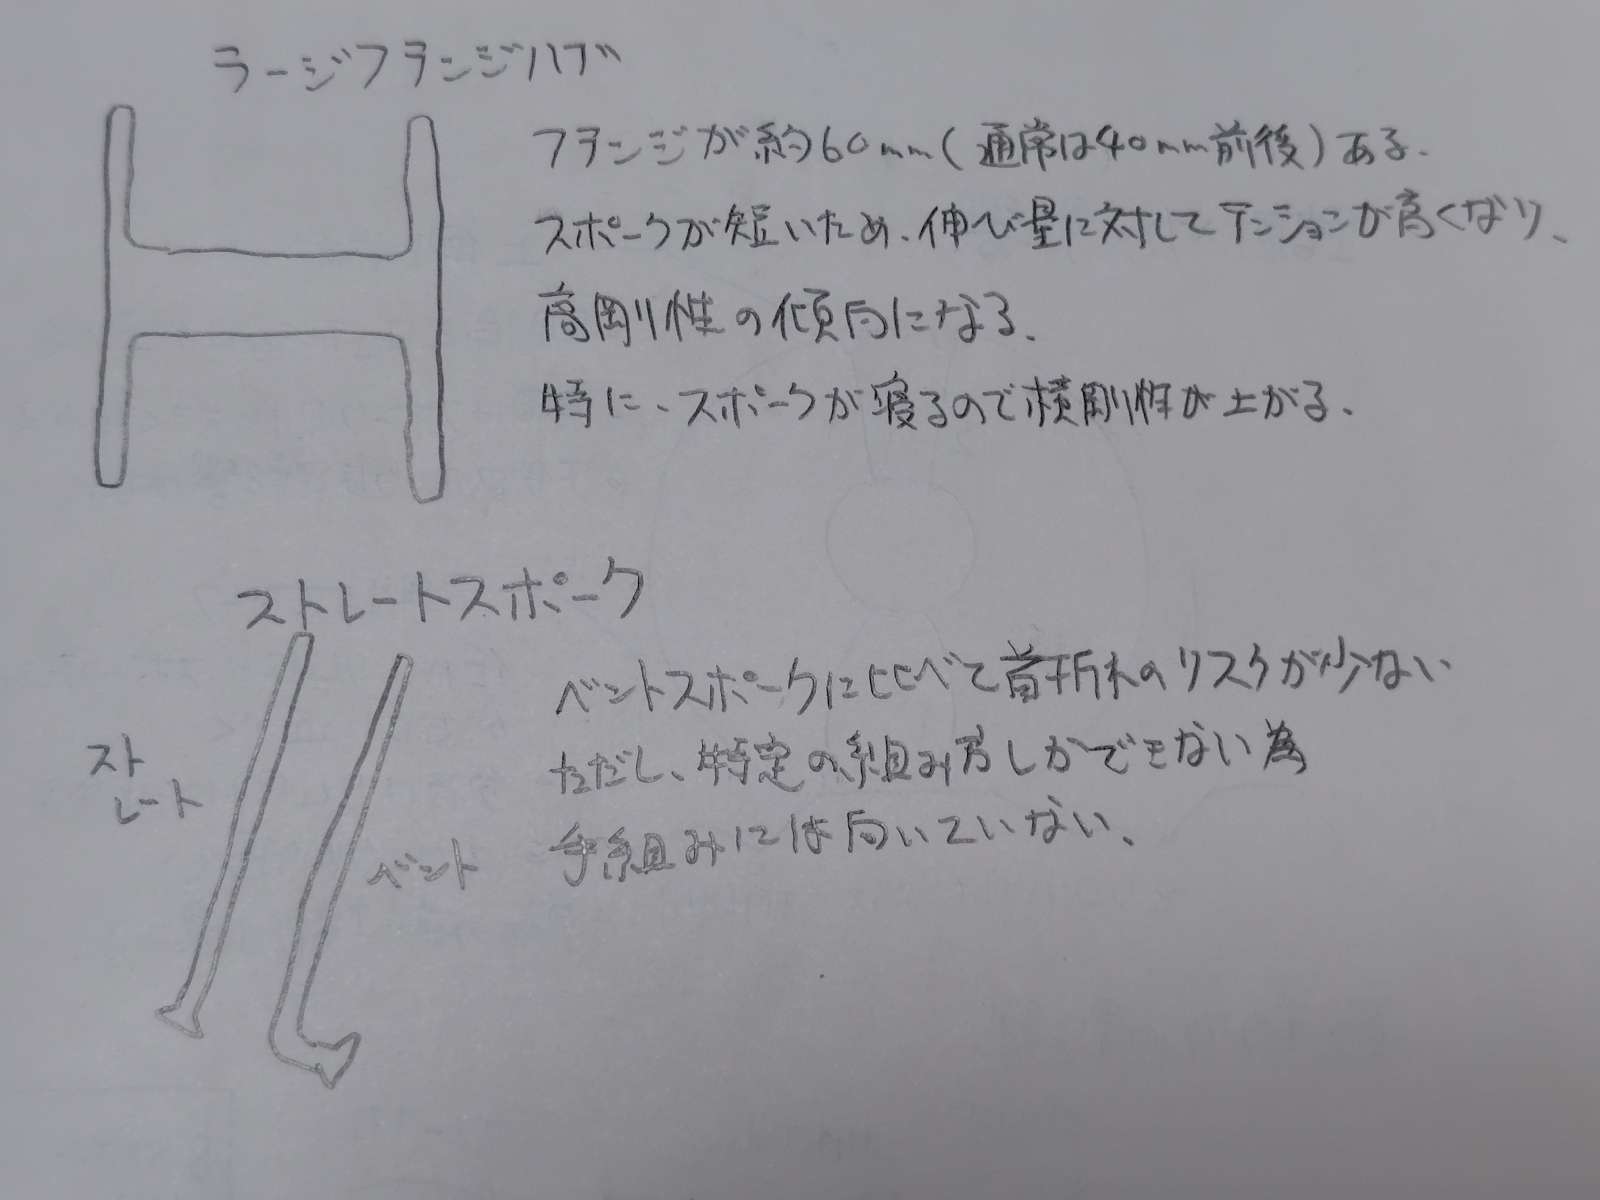 ラージフランジハブ
フランジが約60mm(通常は40mm前後)ある.
スポークが短いため、伸び量に対してテンションが高くなり、
高剛性の傾向になる.
特に、スポークが寝るので横剛性が上がる.
ストレートスポーク
ベントスポークに比べて首折れのリスクが少ない
ただし、特定の組み方しかできない為
手組みには向いていない.
スト
レート
ベント